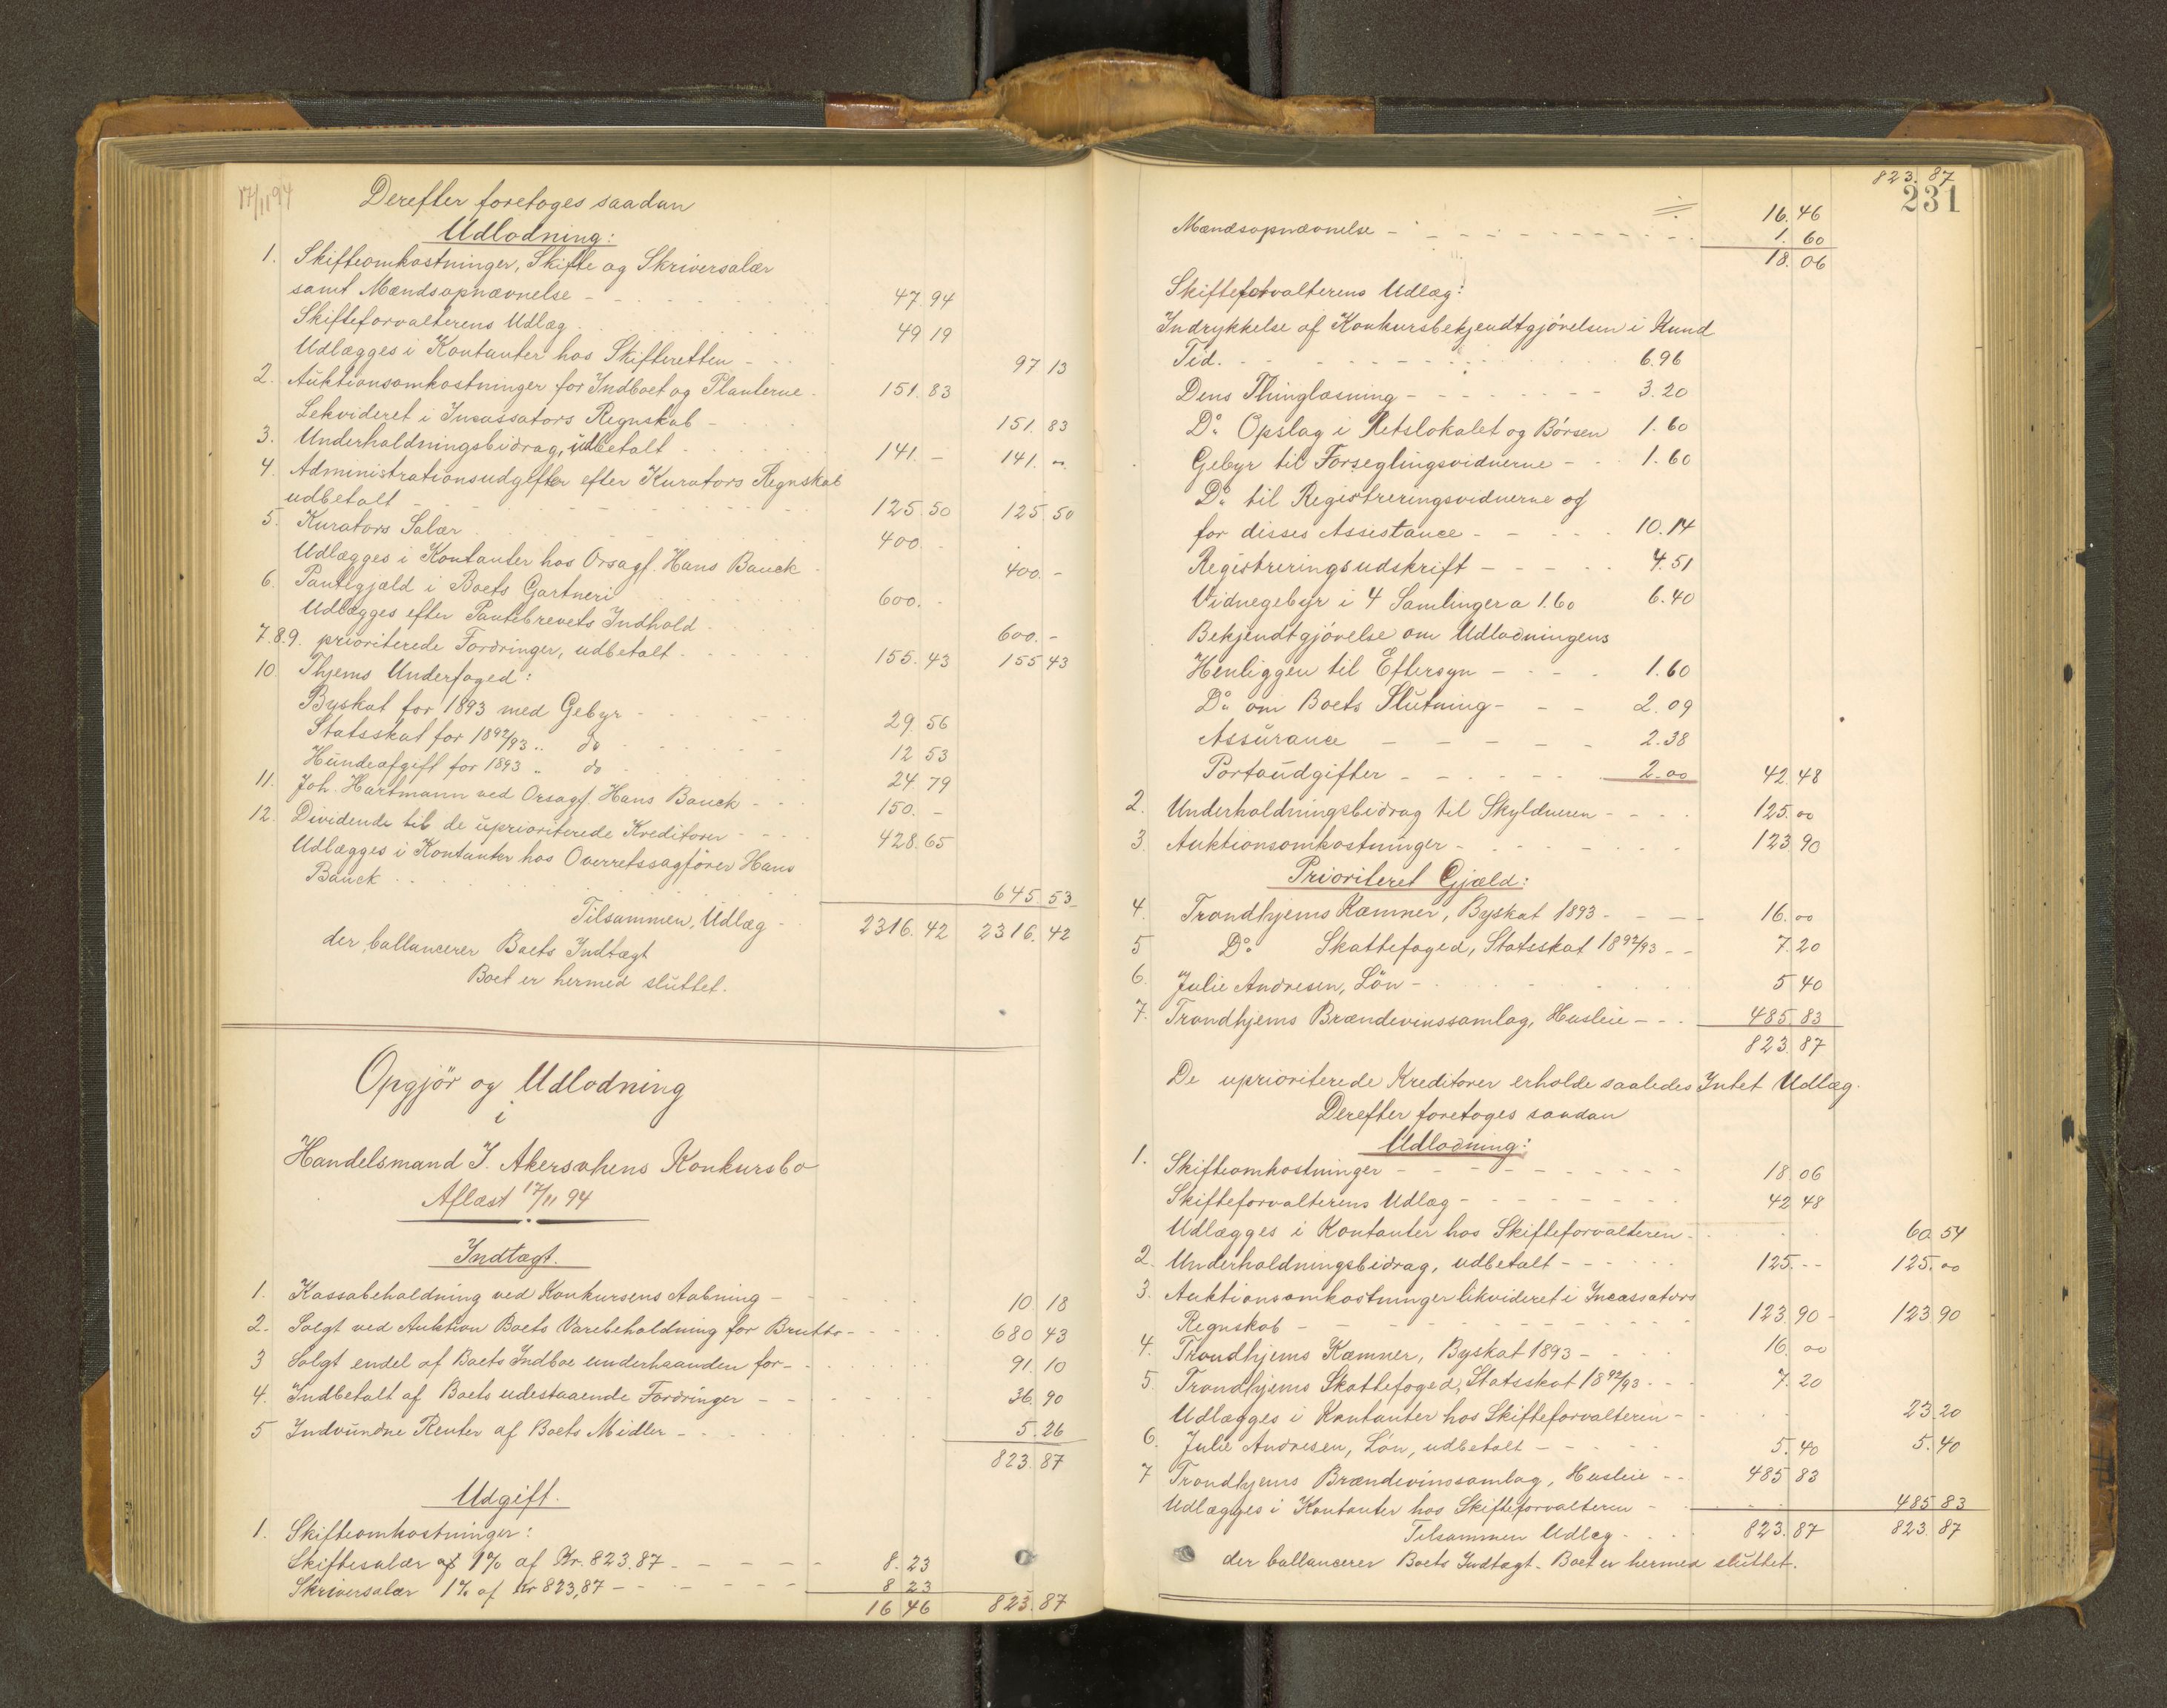 17/11 94
Derefter foretoges saadan
Udlodning:
1. Skifteomkostninger, Skifte og Skriversalær
samt Mændsopnævnelse - 47.94
Skifteforvalterens Udlæg 49 19
Udlægges i Kontanter hos Skifteretten - 97 13
2. Auktionsomkostninger for Indboet og Planterne - 151.83
Lekvideret i Incassators Regnskab - 151.83
3. Underholdningsbidrag, udbetalt 141. - 141. -
4. Administrationsudgifter efter Kurators Regnskab
udbetalt 125.50 125.50
5. Kurators Salær 400. -
Udlægges i Kontanter hos Orsagf. Hans Bauck - 400. -
6. Pantegjæld i Boets Gartneri 600. -
Udlægges efter Pantebrevets Indhold 600. -
7.8.9. prioriterede Fordringer, udbetalt 155.43 155 43
10. Thjems Underfoged:
Byskat for 1893 med Gebyr - 29.56
Statsskat for 1892/93 „ do 12 53
Hundeafgift for 1893 „ do 24 79
11. Joh. Hartmann ved Orsagf. Hans Bauck - 150. -
12. Dividende til de uprioriterede Kreditorer - 428.65
Udlægges i Kontanter hos Overretssagfører Hans
Bauck 645.53
Tilsammen, Udlæg - 2316.42 2316.42
der ballancerer Boets Indtægt
Boet er hermed sluttet.
Opgjör og Udlodning
i
Handelsmand I. Akersvhens Konkursbo
Aflæst 17/11 94
Indtægt.
1. Kassabeholdning ved Konkursens Aabning - 10 18
2. Solgt ved Auktion Boets Varebeholdning for Brutto - 680 43
3 Solgt endel af Boets Indbo underhaanden for - 91.10
4. Indbetalt af Boets udestaaende Fordringer - 36.90
5 Indvundne Renter af Boets Midler - 5.26
823.87
Udgift.
1. Skifteomkostninger:
Skiftesalær af 1% af Kr. 823.87 - 8.23
Skriversalær 1% af Kr 823,87 - 8 23
16 46 823.87
823.87
231
16.46
Mændsopnævnelse - 1.60
18.06
Skifteforvalterens Udlæg:
Indrykkelse af Konkursbekjendtgjörelsen i Kund
Tid. 6.96
Dens Thinglæsning - 3.20
Do Opslag i Retslokalet og Börsen 1.60
Gebyr til Forseglingsvidnerne - 1.60
Do til Registreringsvidnerne og
for disses Assistance - 10.14
Registreringsudskrift - 4.51
Vidnegebyr i 4 Samlinger a 1.60 6.40
Bekjendtgjörelse om Udlodningens
Henliggen til Eftersyn - 1.60
Do om Boets Slutning - 2.09
Assurance - 2.38
Portoudgifter - 2.00 42.48
2. Underholdningsbidrag til Skyldneren - 125.00
3. Auktionsomkostninger - 123 90
Prioriteret Gjæld:
4. Trondhjems Kæmner, Byskat 1893 - 16.00
5 Do Skattefoged, Statsskat 1892/93 - 7.20
6. Julie Andresen, Lön - 5 40
7. Trondhjems Brændevinssamlag, Husleie - 485.83
823.87
De uprioriterede Kreditorer erholde saaledes Intet Udlæg.
Derefter foretoges saadan
Udlodning:
1. Skifteomkostninger - 18.06
Skifteforvalterens Udlæg - 42 48
Udlægges i Kontanter hos Skifteforvalteren - 60 54
2. Underholdningsbidrag, udbetalt - 125. - 125.00
3. Auktionsomkostninger likvideret i Incassators
Regnskab - 123.90 - 123 90
4. Trondhjems Kæmner, Byskat 1893 - 16.00
5. Trondhjems Skattefoged, Statsskat 1892/93 - 7.20
Udlægges i Kontanter hos Skifteforvalteren - 23 20
6. Julie Andresen, Lön, udbetalt - 5.40 5.40
7 Trondhjems Brændevinssamlag, Husleie - 485 83
Udlægges i Kontanter hos Skifteforvalteren - 485 83
Tilsammen Udlæg - 823.87 823.87
der ballancerer Boets Indtægt. Boet er hermed sluttet.